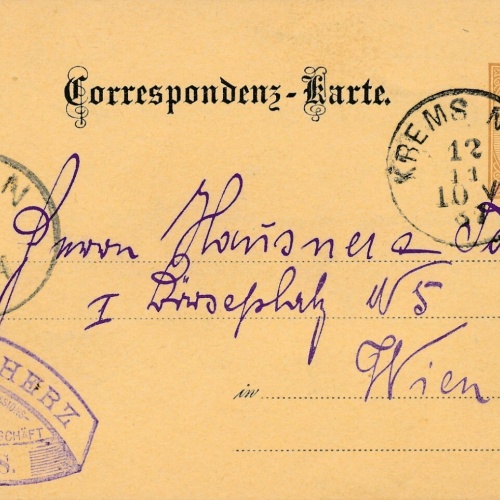 Correspondenz-Karte.
KREMS N
12
11
10 V
Herrn Hausner &
I Börseplatz N 5
in Wien
HERZ
SCHÄFT
S.